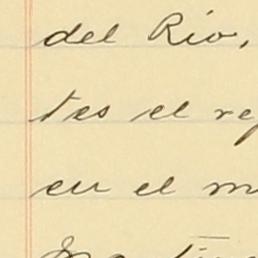 del Rio,
tes el re
en el m